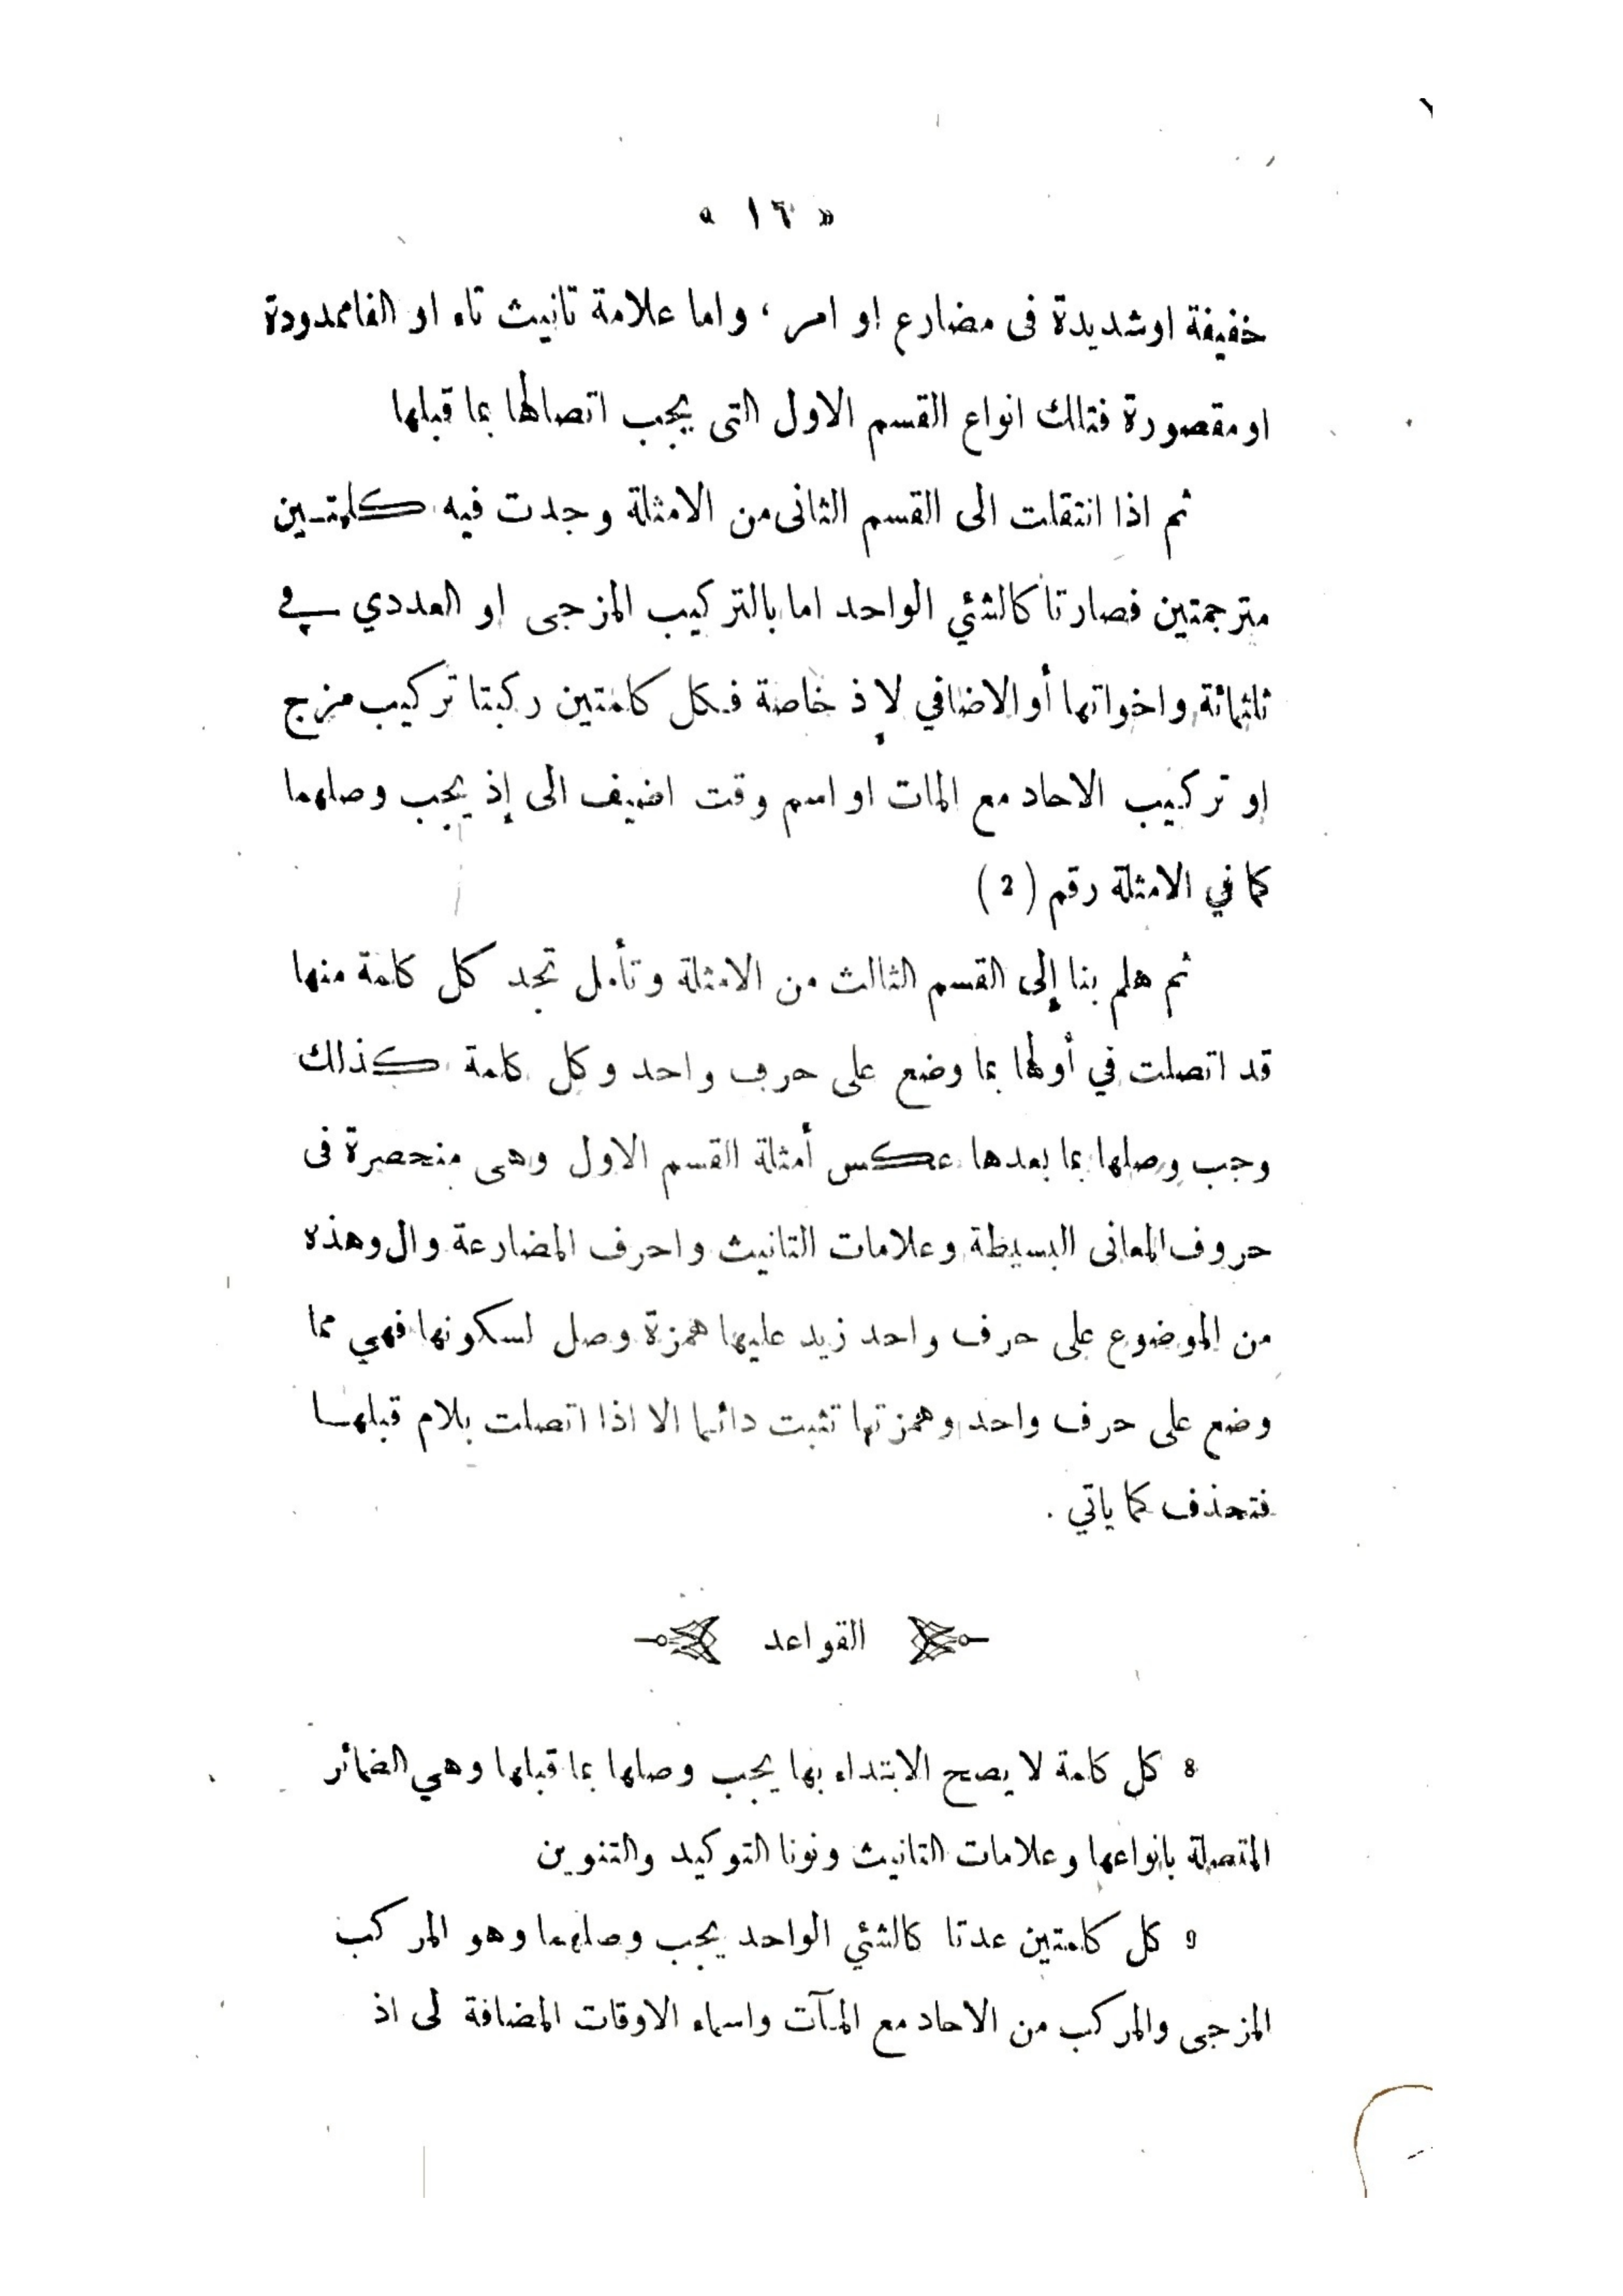 « ١٦ »
خفيفة او شديدة فى مضارع او امر ، واما علامة تانيث تاء او الفا ممدودة
او مقصورة فتلك انواع القسم الاول التى يجب اتصالها بما قبلها
ثم اذا انتقلت الى القسم الثانى من الامثلة وجدت فيه كلمتين
مترجمتين فصارتا كالشئي الواحد اما بالتركيب المزجى او العددي في
ثلثمائة واخواتها أو الاضافي لإذ خاصة فكل كلمتين ركبتا تركيب مزج
او تركيب الاحاد مع المات او اسم وقت اضيف الى إذ يجب وصلهما
كما في الامثلة رقم (2)
ثم هلم بنا إلى القسم الثالث من الامثلة وتأمل تجد كل كلمة منها
قد اتصلت في أولها بما وضع على حرف واحد وكل كلمة كذلك
وجب وصلها بما بعدها عكس أمثلة القسم الاول وهى منحصرة فى
حروف المعانى البسيطة وعلامات التانيث واحرف المضارعة وال وهذه
من الموضوع على حرف واحد زيد عليها همزة وصل لسكونها فهي مما
وضع على حرف واحد وهمزتها تثبت دائما الا اذا اتصلت بلام قبلها
فتحذف كما ياتي .
القواعد
8 كل كلمة لا يصح الابتداء بها يجب وصلها بما قبلها وهي الضمائر
المتصلة بانواعها وعلامات التانيث ونونا التوكيد والتنوين
9 كل كلمتين عدتا كالشئي الواحد يجب وصلهما وهو المركب
المزجى والمركب من الاحاد مع المآت واسماء الاوقات المضافة لى اذ